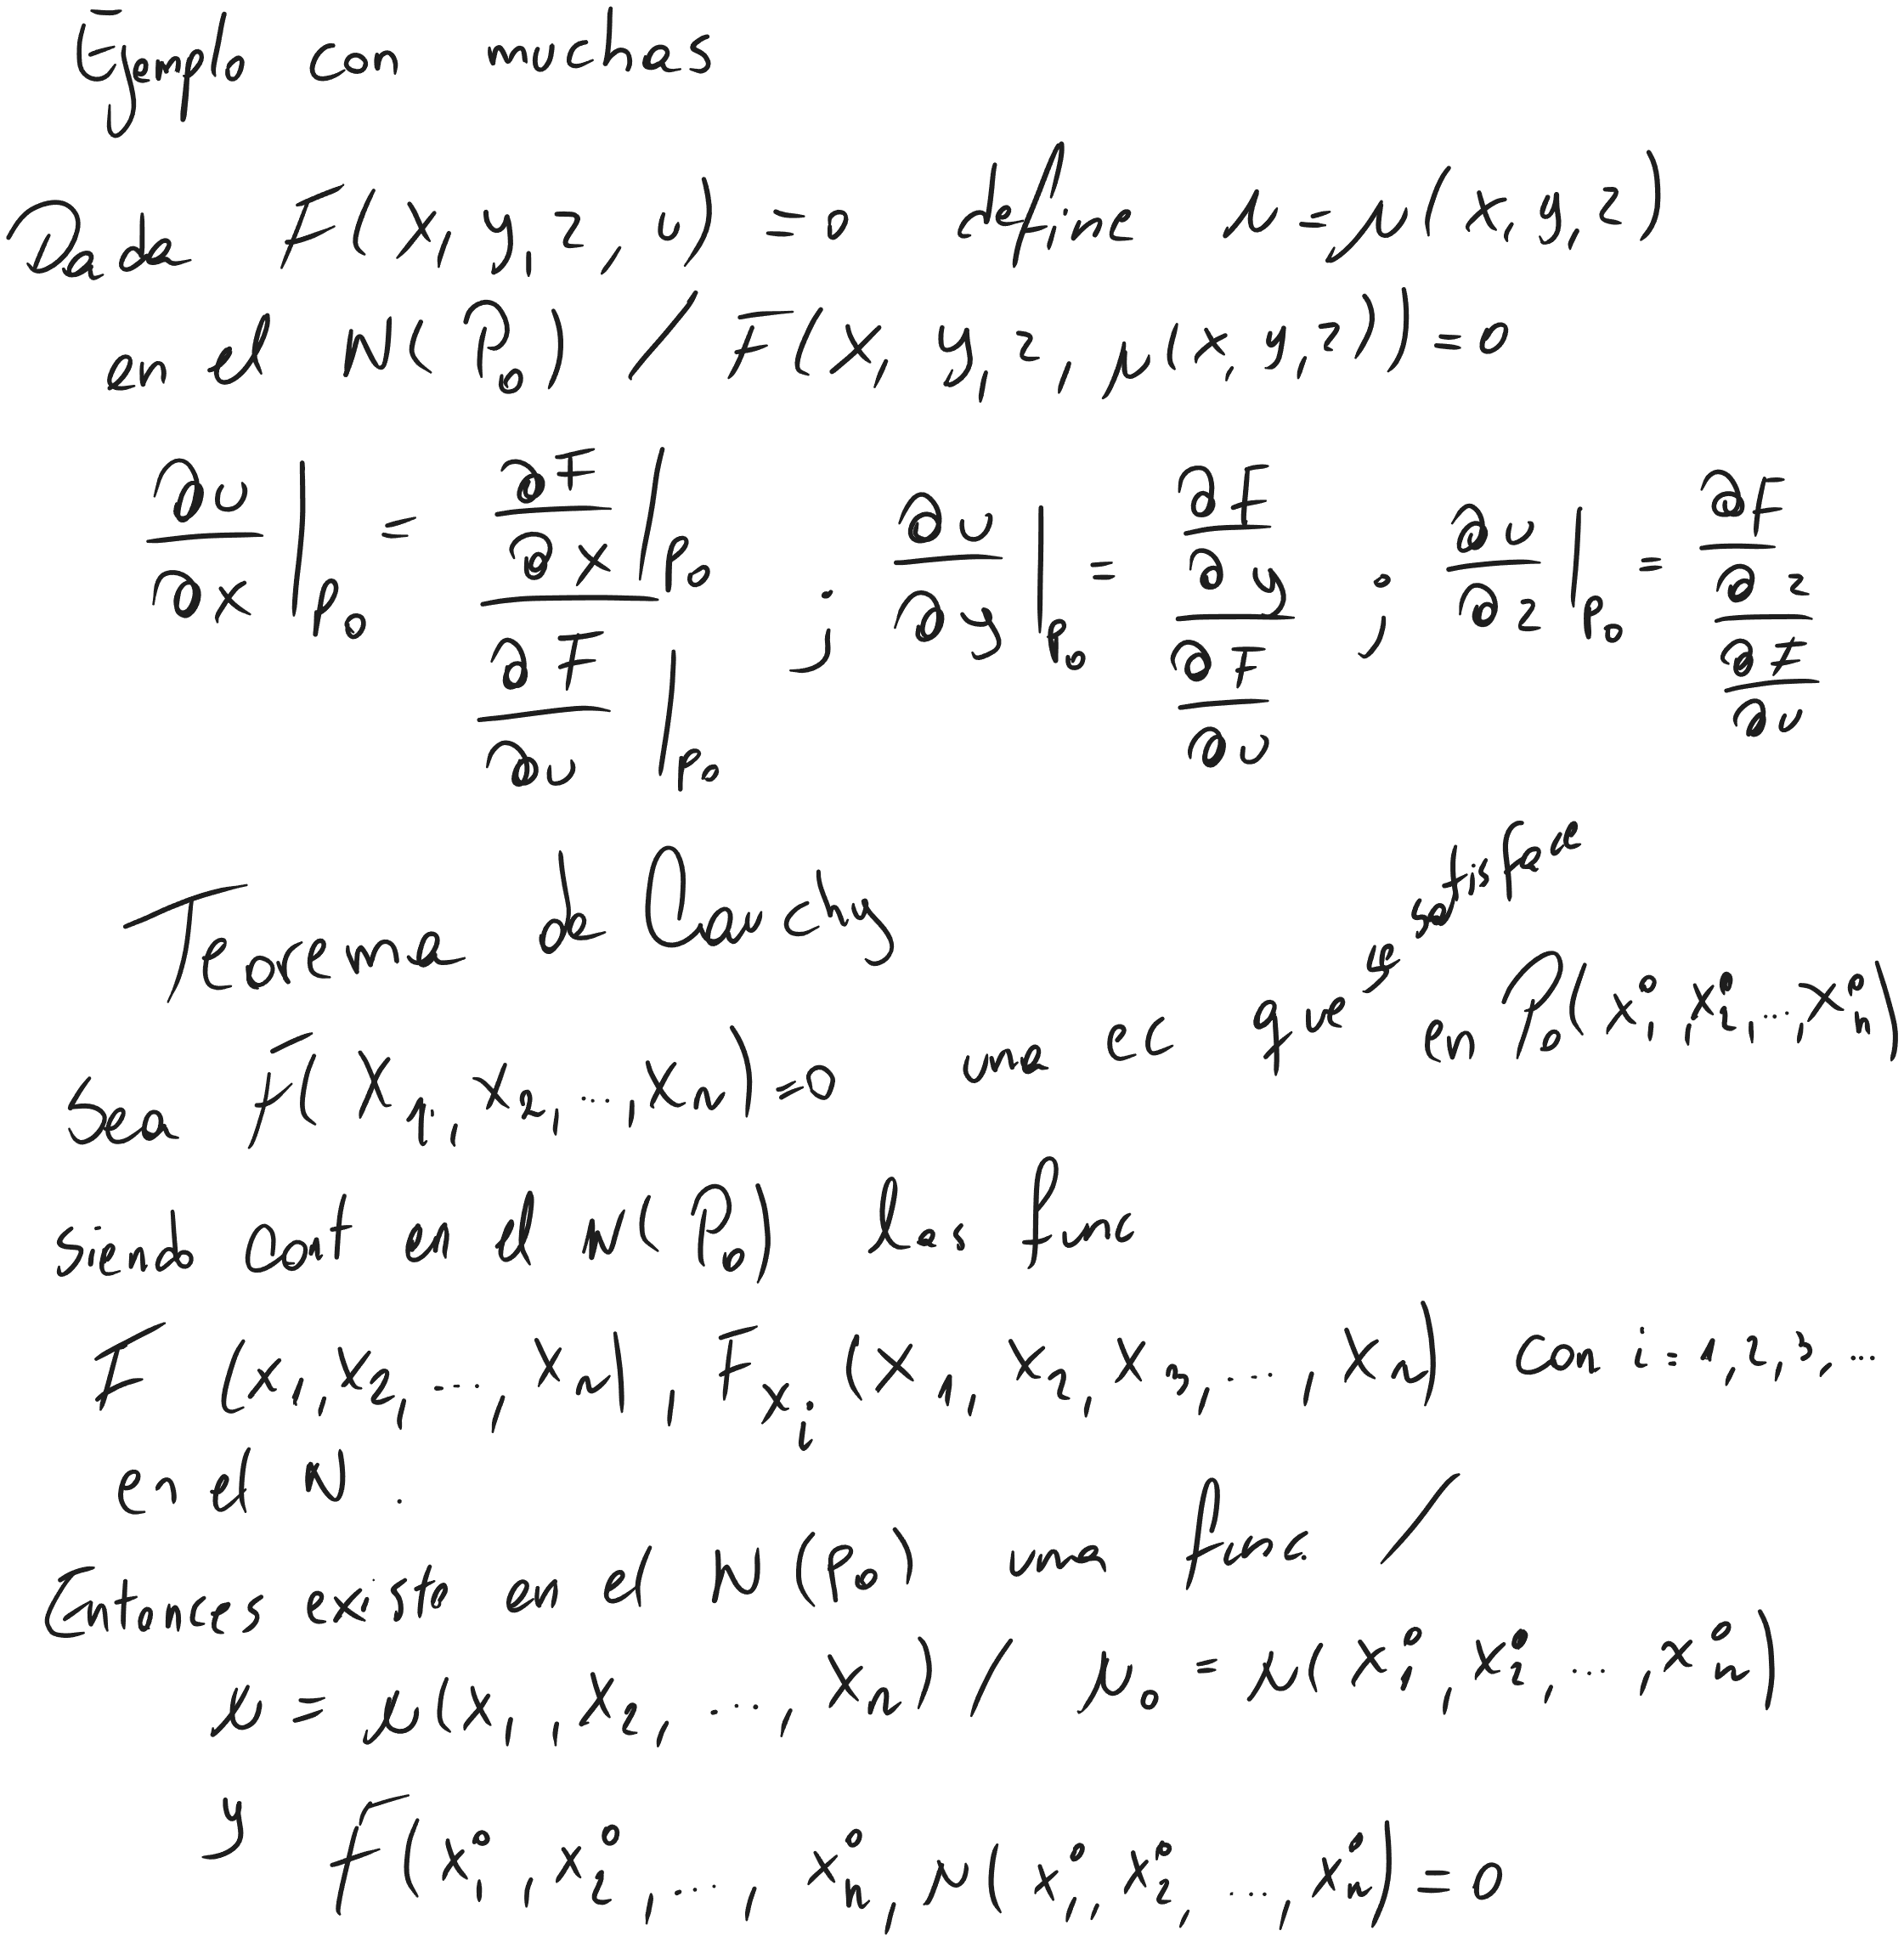 Ejemplo con muchas
Dada F(x, y, z, u) = 0 define μ = μ(x, y, z)
en el N(P₀) / F(x, y, z, μ(x, y, z)) = 0
∂u/∂x |P₀ = (∂F/∂x |P₀) / (∂F/∂u |P₀) ; ∂u/∂y |P₀ = (∂F/∂y) / (∂F/∂u) ; ∂u/∂z |P₀ = (∂F/∂z) / (∂F/∂u)
Teorema de Cauchy
Sea F(x₁, x₂, ..., xₙ) = 0 una ec que se satisface en P₀(x₁⁰, x₂⁰, ..., xₙ⁰)
siendo cont en el N(P₀) las func
F (x₁, x₂, ..., xₙ), F_xᵢ (x₁, x₂, x₃, ..., xₙ) con i = 1, 2, 3, ...
en el N .
Entonces existe en el N(P₀) una func. /
μ = μ(x₁, x₂, ..., xₙ) / μ₀ = μ(x₁⁰, x₂⁰, ..., xₙ⁰)
y F(x₁⁰, x₂⁰, ..., xₙ⁰, μ(x₁⁰, x₂⁰, ..., xₙ⁰) = 0